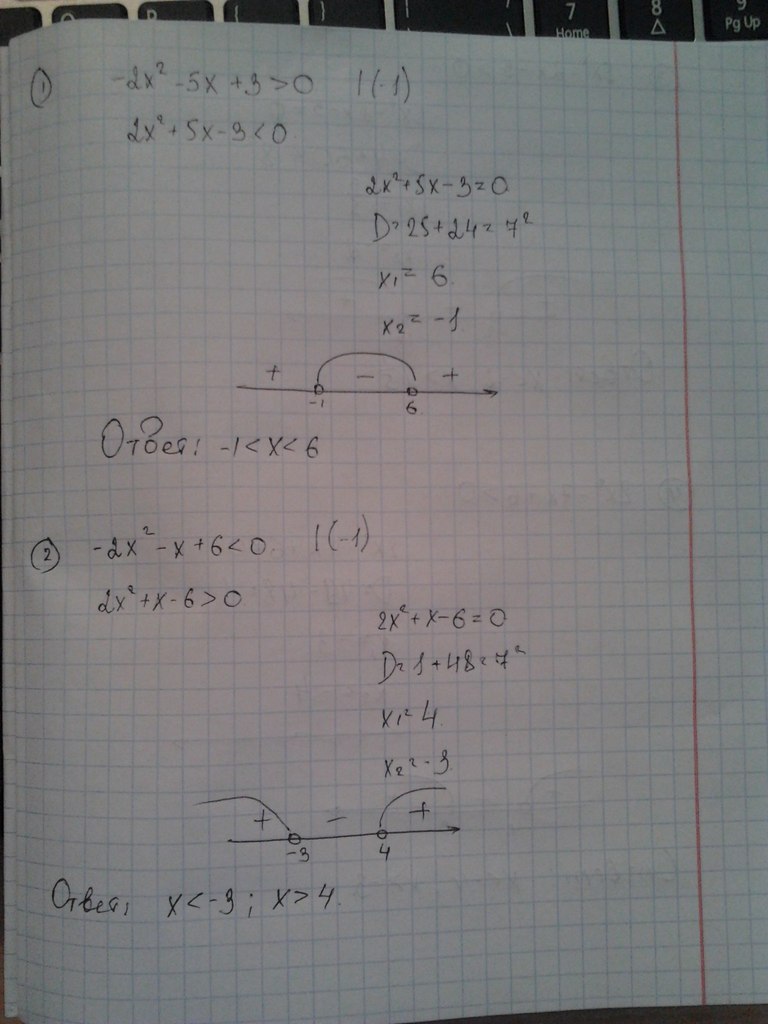 7 8 9
Home Pg Up
① -2x² -5x +3 > 0 | (-1)
2x² + 5x - 3 < 0
2x² + 5x - 3 = 0
D = 25 + 24 = 7²
x₁ = 6
x₂ = -1
+ - +
-1 6
Ответ: -1 < x < 6
② -2x² - x + 6 < 0 | (-1)
2x² + x - 6 > 0
2x² + x - 6 = 0
D = 1 + 48 = 7²
x₁ = 4
x₂ = -3
+ - +
-3 4
Ответ: x < -3 ; x > 4.